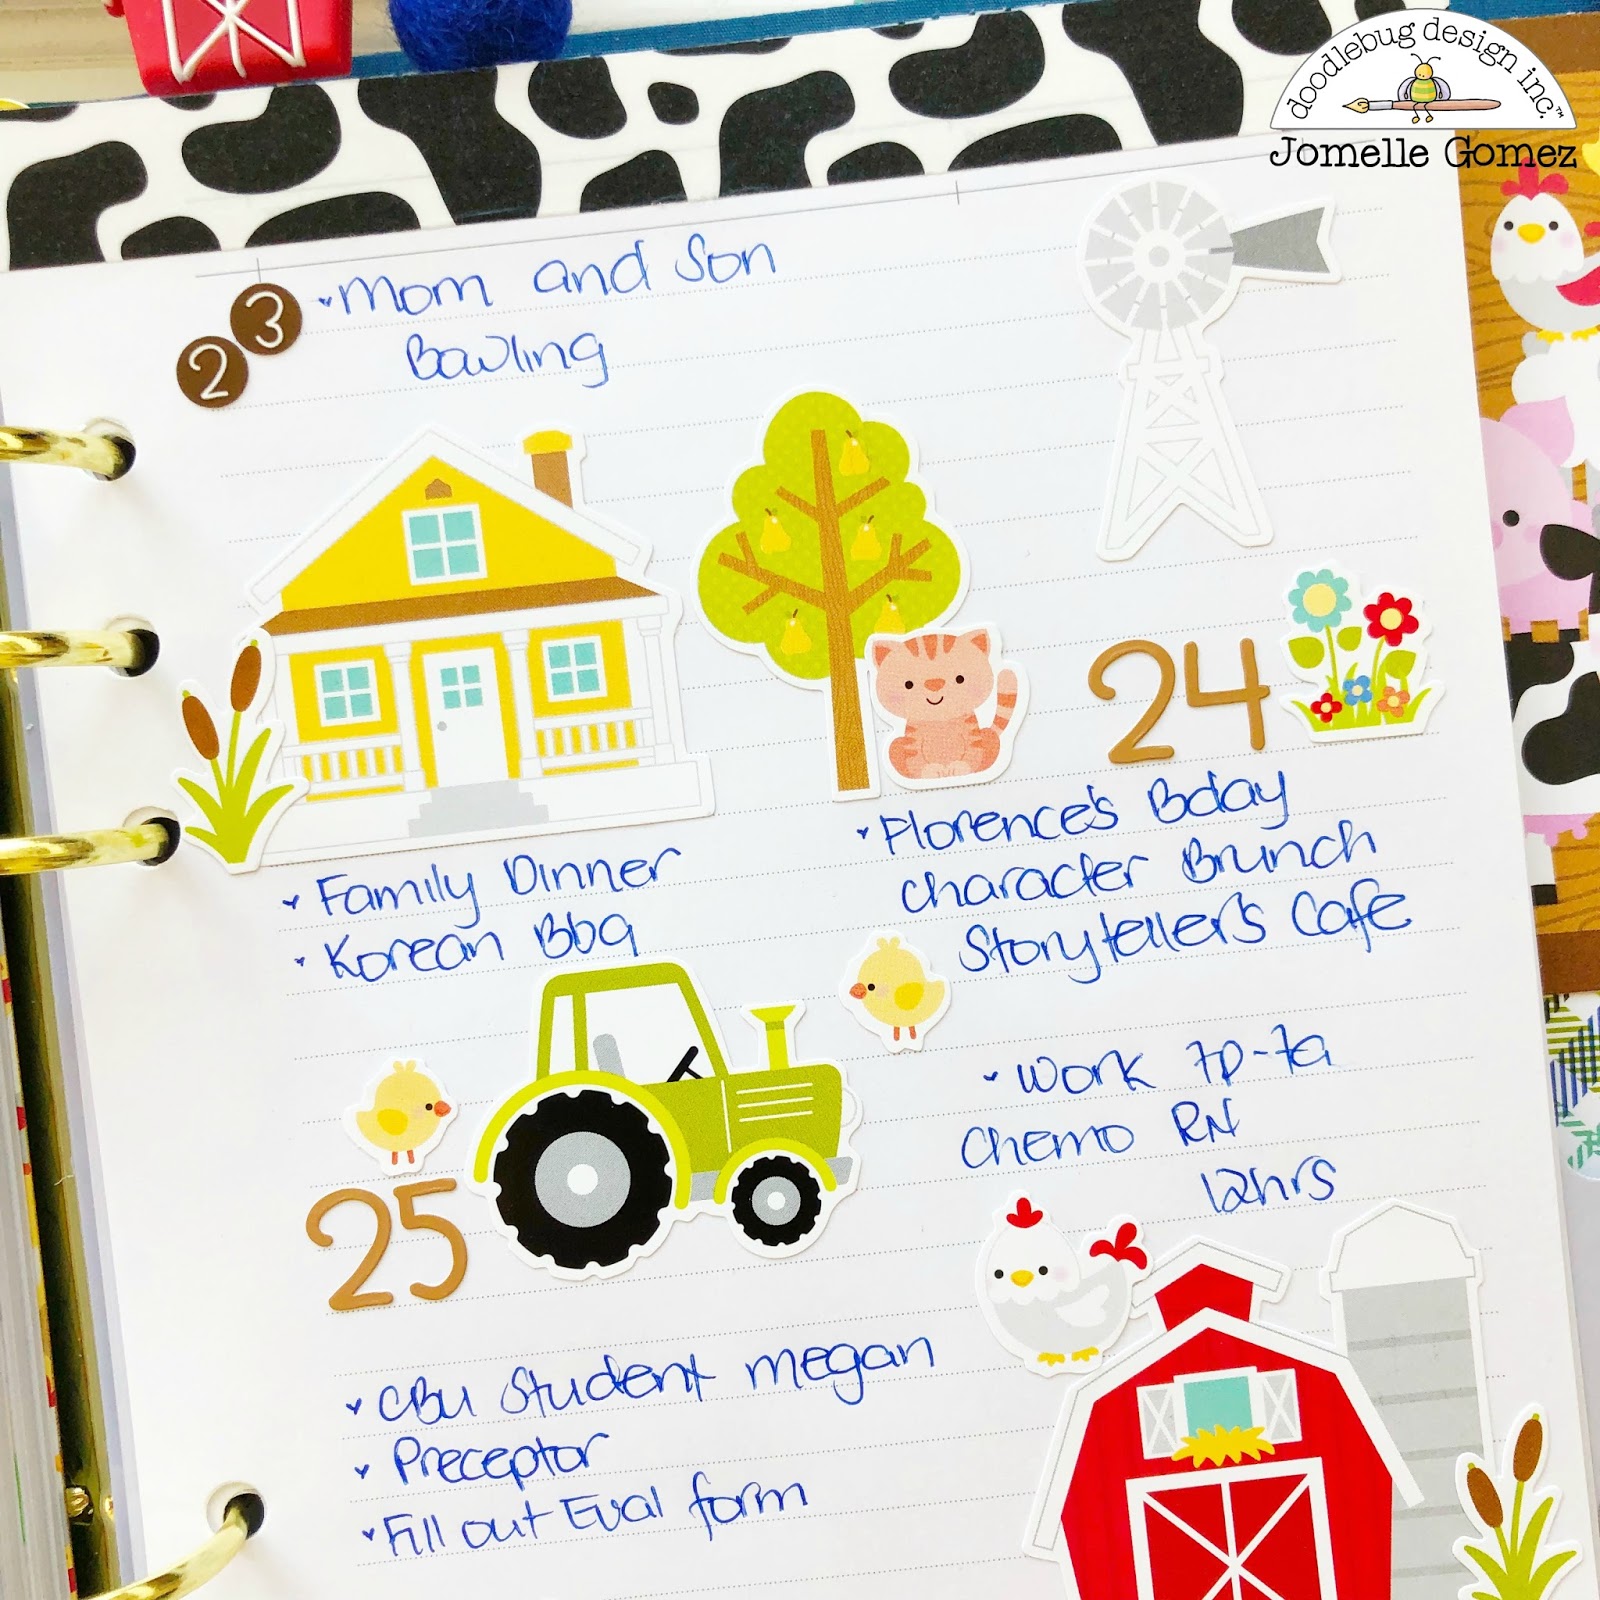 doodlebug design inc.™
Jomelle Gomez
23
Mom and Son
Bowling
Family Dinner
Korean Bbq
24
Florence's Bday
Character Brunch
Storyteller's Cafe
Work 7p-7a
Chemo RN
12hrs
25
CBU Student Megan
Preceptor
Fill out Eval form